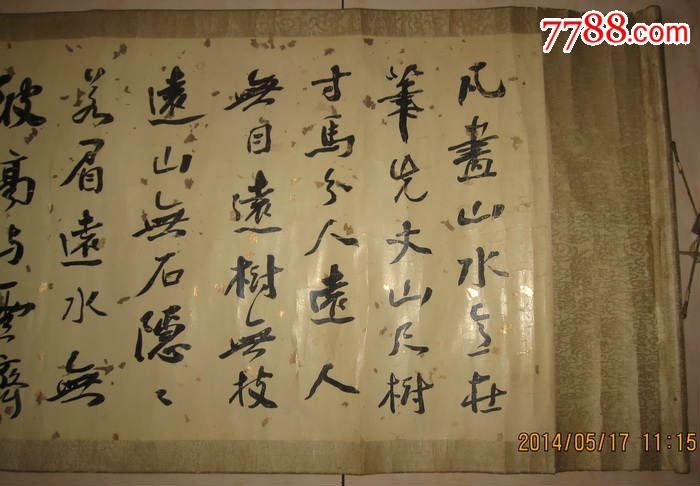 凡畫山水意在
筆先丈山尺樹
寸馬分人遠人
無目遠樹無枝
遠山無石隱〻
若眉遠水無
波高与雲齊
7788.com
2014/05/17 11:15